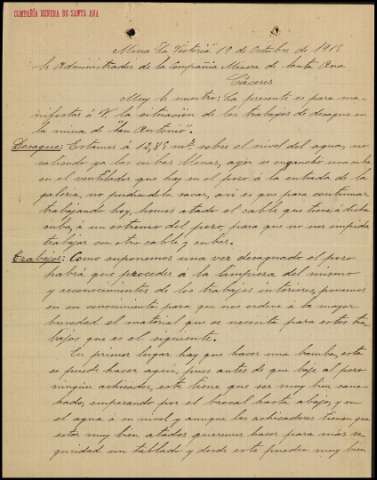 COMPAÑÍA MINERA DE SANTA ANA
Mina "La Victoria" 19 de Octubre de 1918
Sr Administrador de la Compañia Minera de Santa Ana
Cáceres
Muy Sr nuestro: La presente es para ma-
nifestar á V. la situación de los trabajos de desagüe en
la mina de "San Antonio".
Desagüe: Estamos á 12,85 mt. sobre el nivel del agua, no
saliendo ya las cubas llenas, ayer se enganchó una cuba
en el ventilador que hay en el pozo á la entrada de la
galeria, no pudiendola sacar, asi es que para continuar
trabajando hoy, hemos atado el cable que tenia dicha
cuba, á un extremo del pozo, para que no nos impida
trabajar con otro cable y cubas.
Trabajos: Como suponemos una vez desaguado el pozo
habrá que proceder á la limpieza del mismo
y reconocimientos de los trabajos interiores, ponemos
en su conocimiento para que nos ordene á la mayor
brevedad el material que se necesita para estos tra-
bajos que es el siguiente.
En primer lugar hay que hacer una bomba, esta
se puede hacer aqui, pues antes de que baje al pozo
ningún achicador, este tiene que ser muy bien sanea-
do, empezando por el brocal hasta abajo, y en
el agua á su nivel y aunque los achicadores tienen que
estar muy bien atados queremos hacer para más se-
guridad un tablado y desde este pueden muy bien